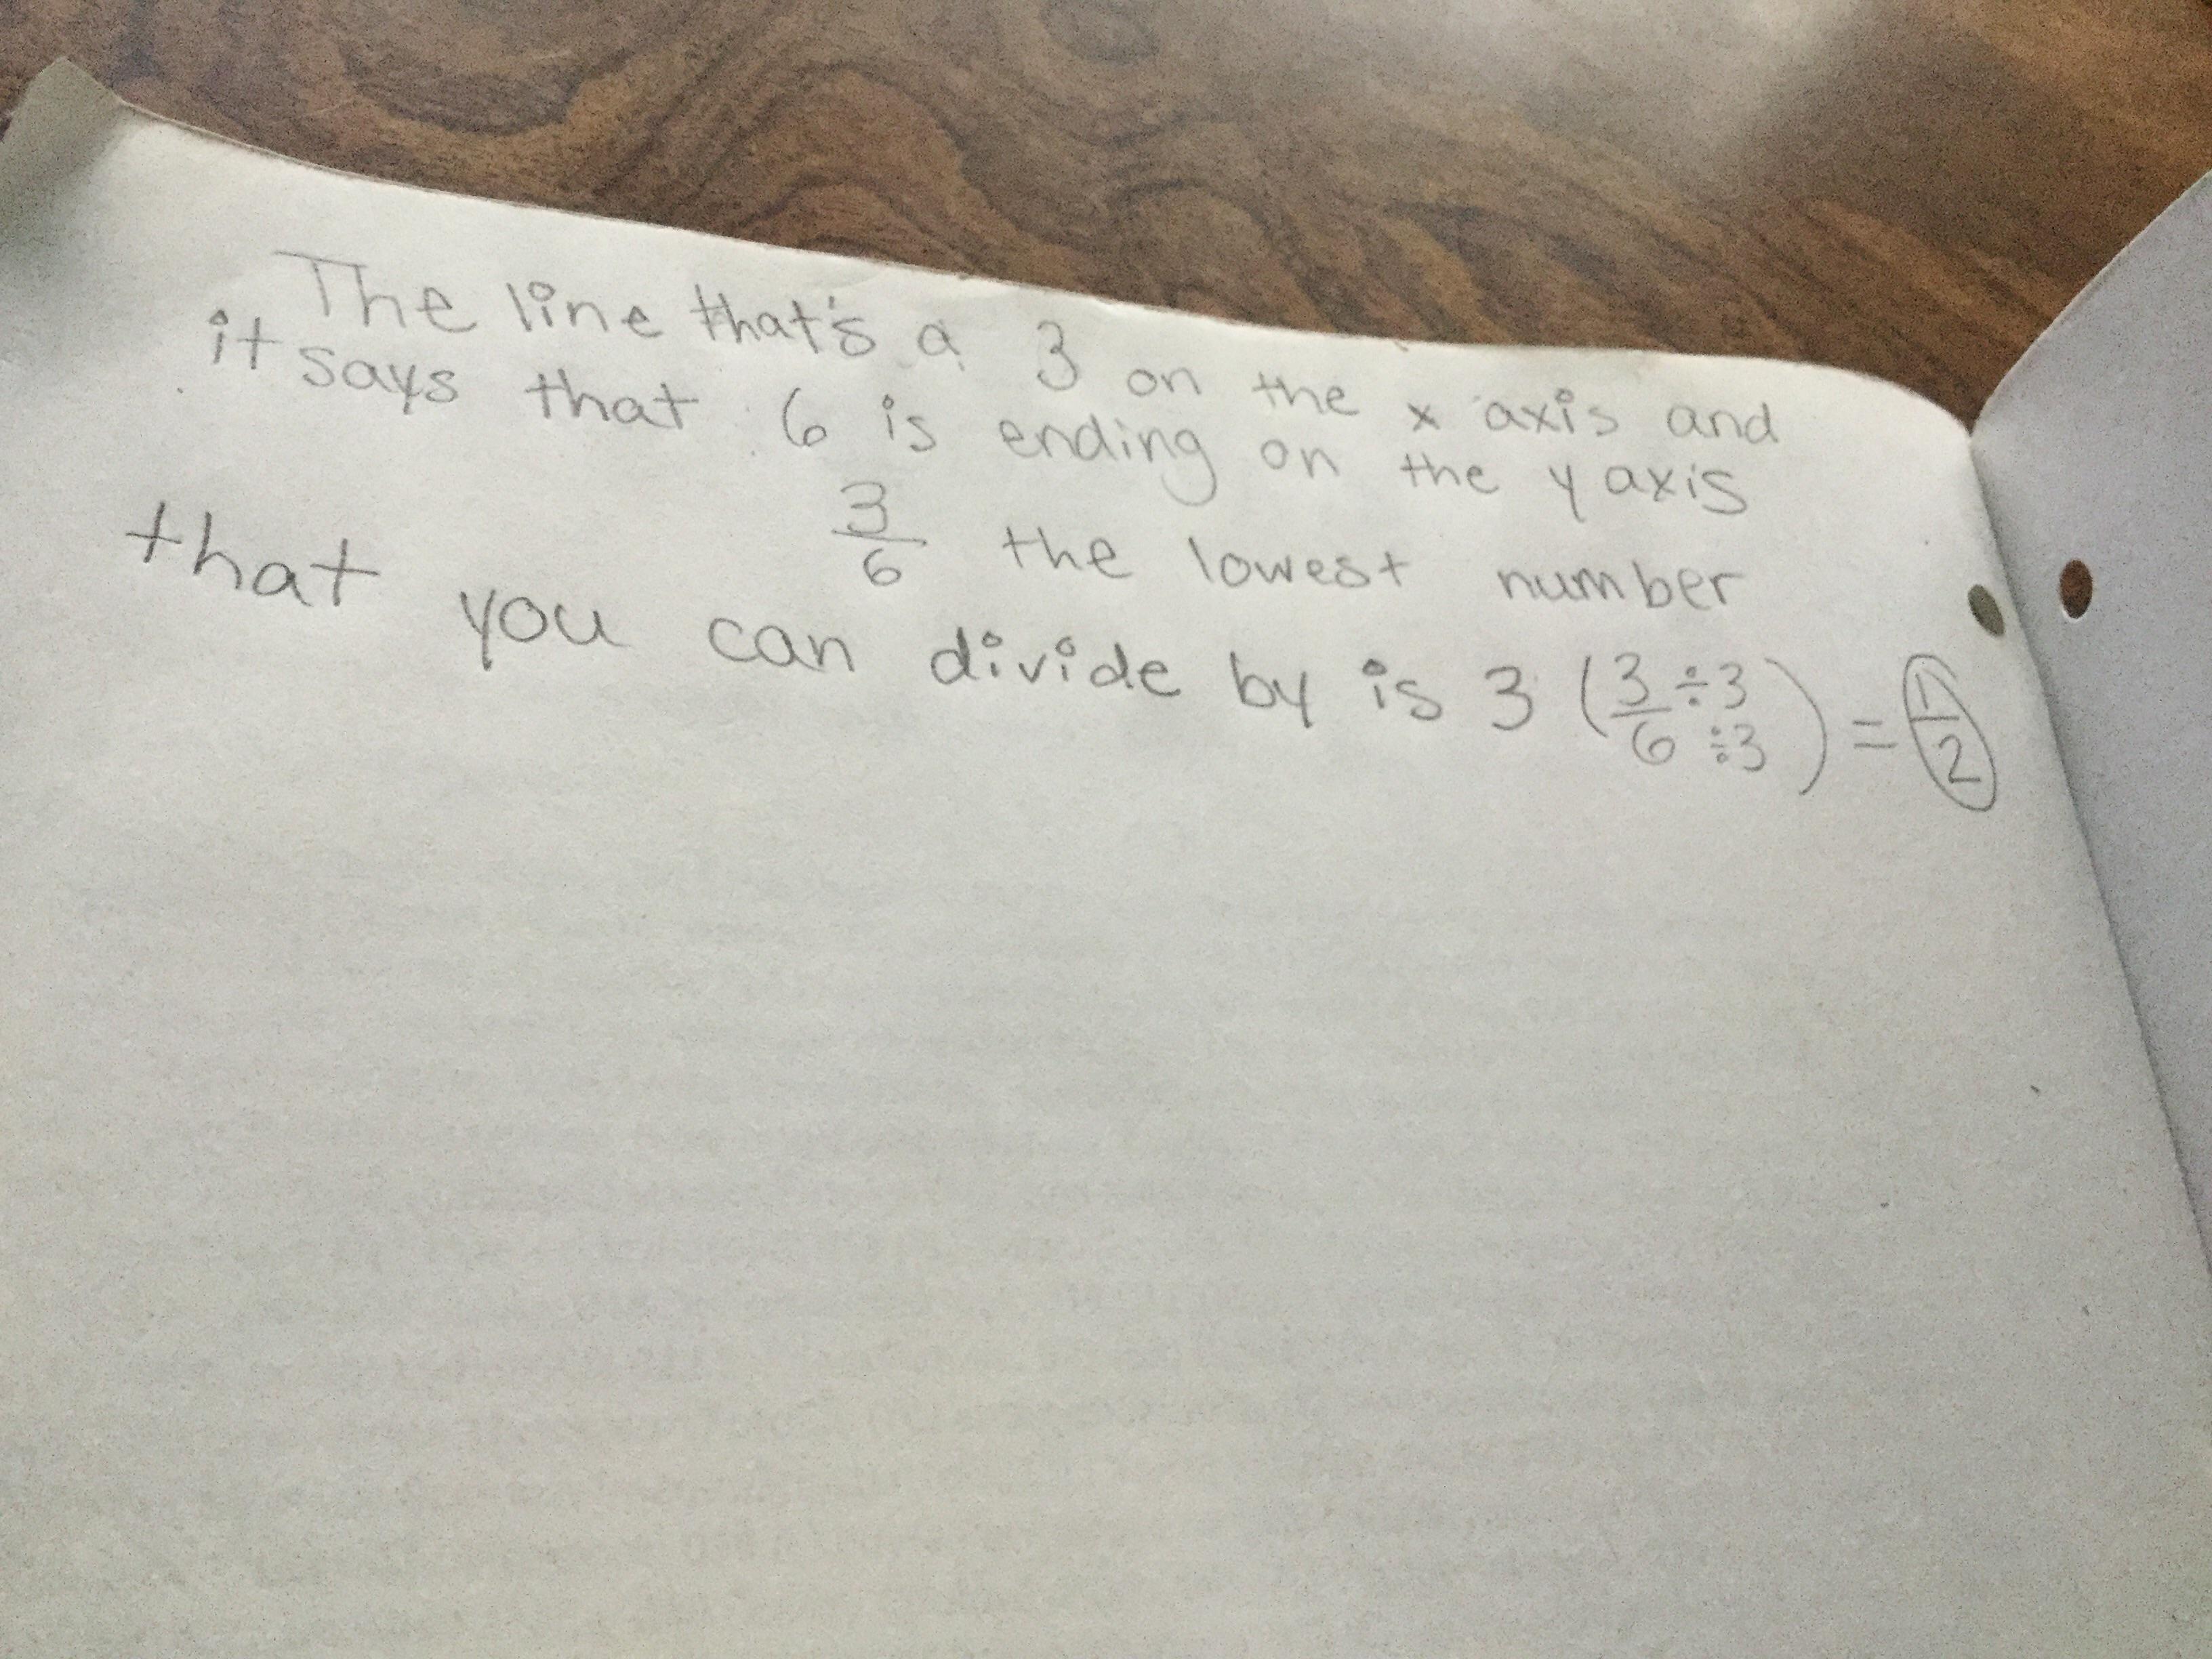 The line that's a 3 on the x axis and
it says that 6 is ending on the y axis
3/6 the lowest number
that you can divide by is 3 (3÷3/6÷3) = 1/2